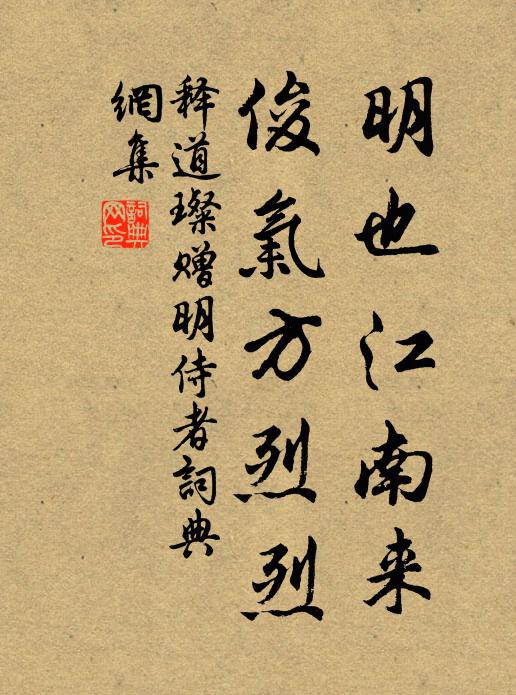 明也江南来
俊氣方烈烈
释道璨赠明侍者詞典
網集
詞典
网印